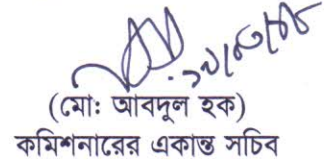 (মো: আবদুল হক)
কমিশনারের একান্ত সচিব